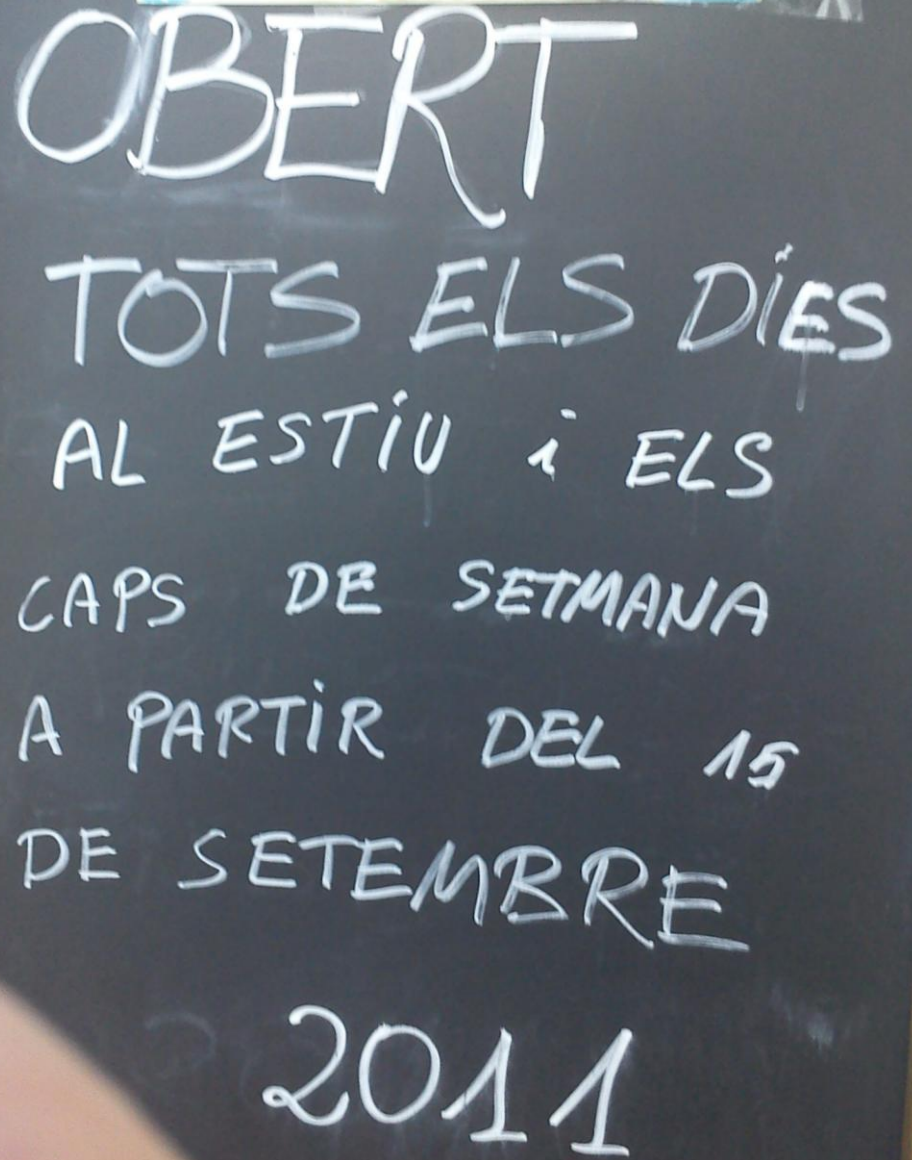 OBERT
TOTS ELS DÍES
AL ESTiU i ELS
CAPS DE SETMANA
A PARTiR DEL 15
DE SETEMBRE
2011